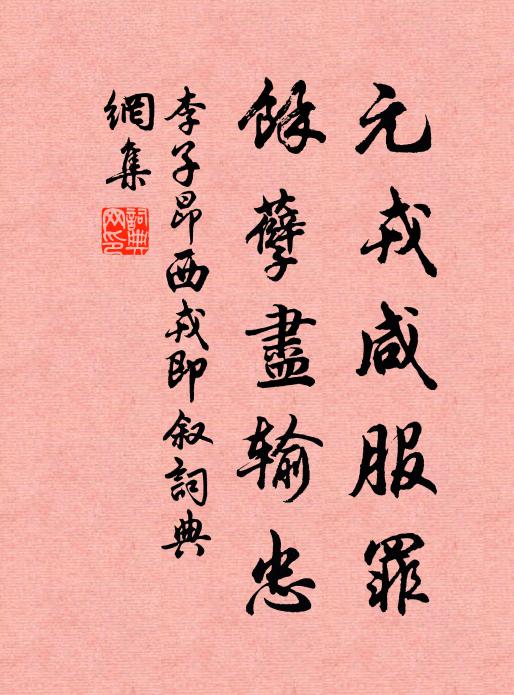 元戎咸服罪
餘孽盡输忠
李子昂西戎即叙詞典
網集
詞典網印